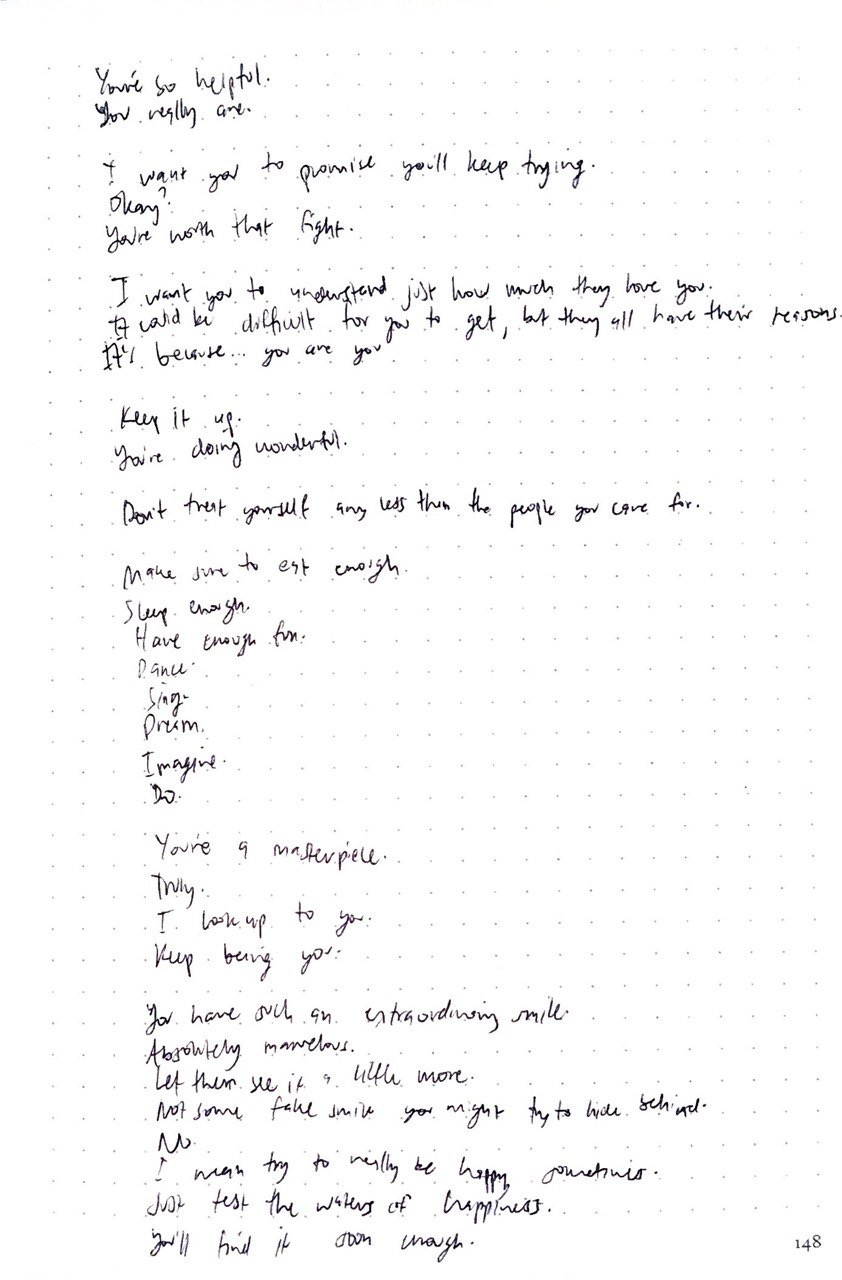 You're so helpful.
You really are.
I want you to promise you'll keep trying.
Okay?
You're worth that fight.
I want you to understand just how much they love you.
It could be difficult for you to get, but they all have their reasons.
It's because... you are you
Keep it up.
You're doing wonderful.
Don't treat yourself any less than the people you care for.
Make sure to eat enough.
Sleep enough.
Have enough fun.
Dance.
Sing.
Dream.
Imagine.
Do.
You're a masterpiece.
Truly.
I look up to you.
Keep being you.
You have such an extraordinary smile.
Absolutely marvelous.
Let them see it a little more.
Not some fake smile you might try to hide behind.
No.
I mean try to really be happy sometimes.
Just test the waters of happiness.
You'll find it soon enough.
148